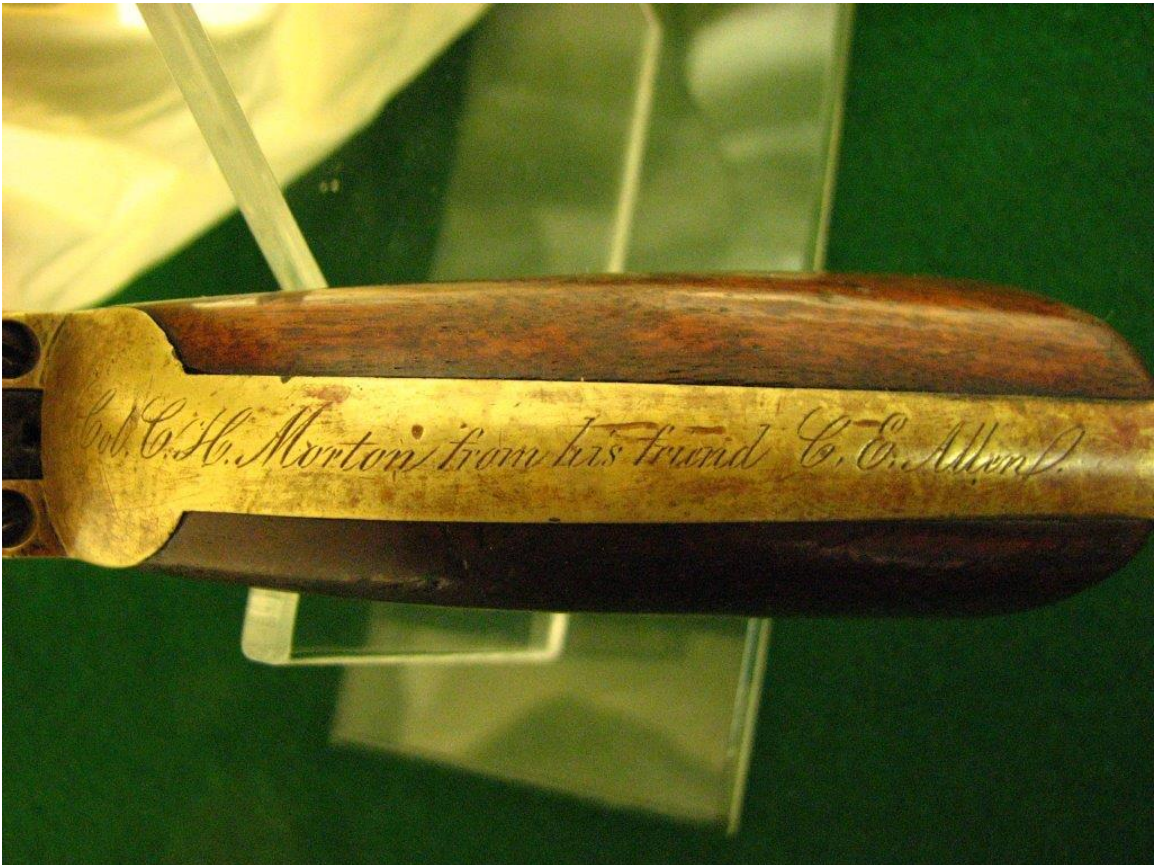 Col. C. H. Morton from his friend C. E. Allen.